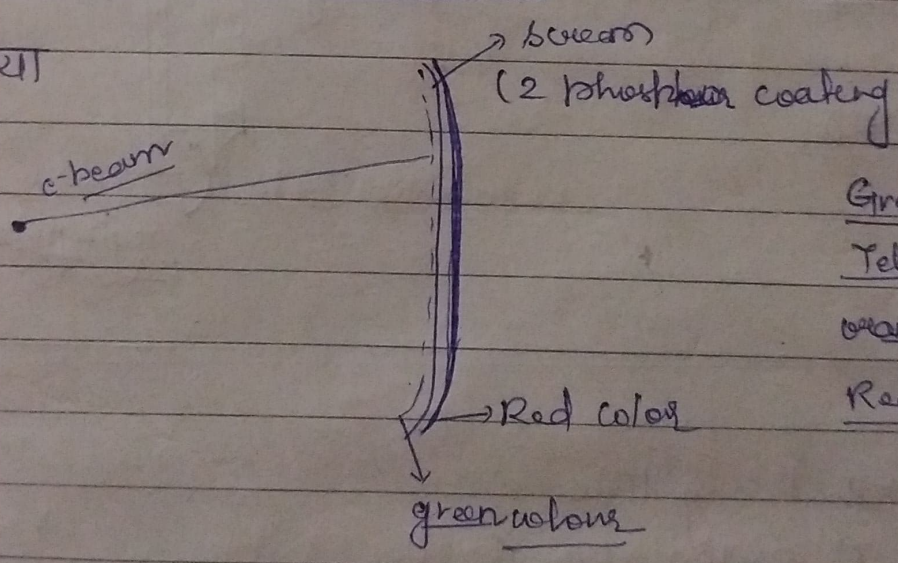 या
screen
(2 phosphour coating
e-beam
Gr
Yel
ora
Re
Red color
green colour